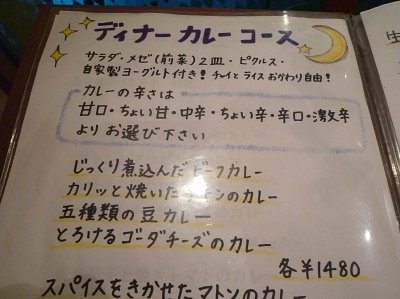 ディナーカレーコース
サラダ・メゼ(前菜)2皿・ピクルス・
自家製ヨーグルト付き!チャイとライスおかわり自由!
カレーの辛さは
甘口・ちょい甘・中辛・ちょい辛・辛口・激辛
よりお選び下さい
じっくり煮込んだビーフカレー
カリッと焼いたチキンのカレー
五種類の豆カレー
とろけるゴーダチーズのカレー
各¥1480
スパイスをきかせたマトンのカレー
生